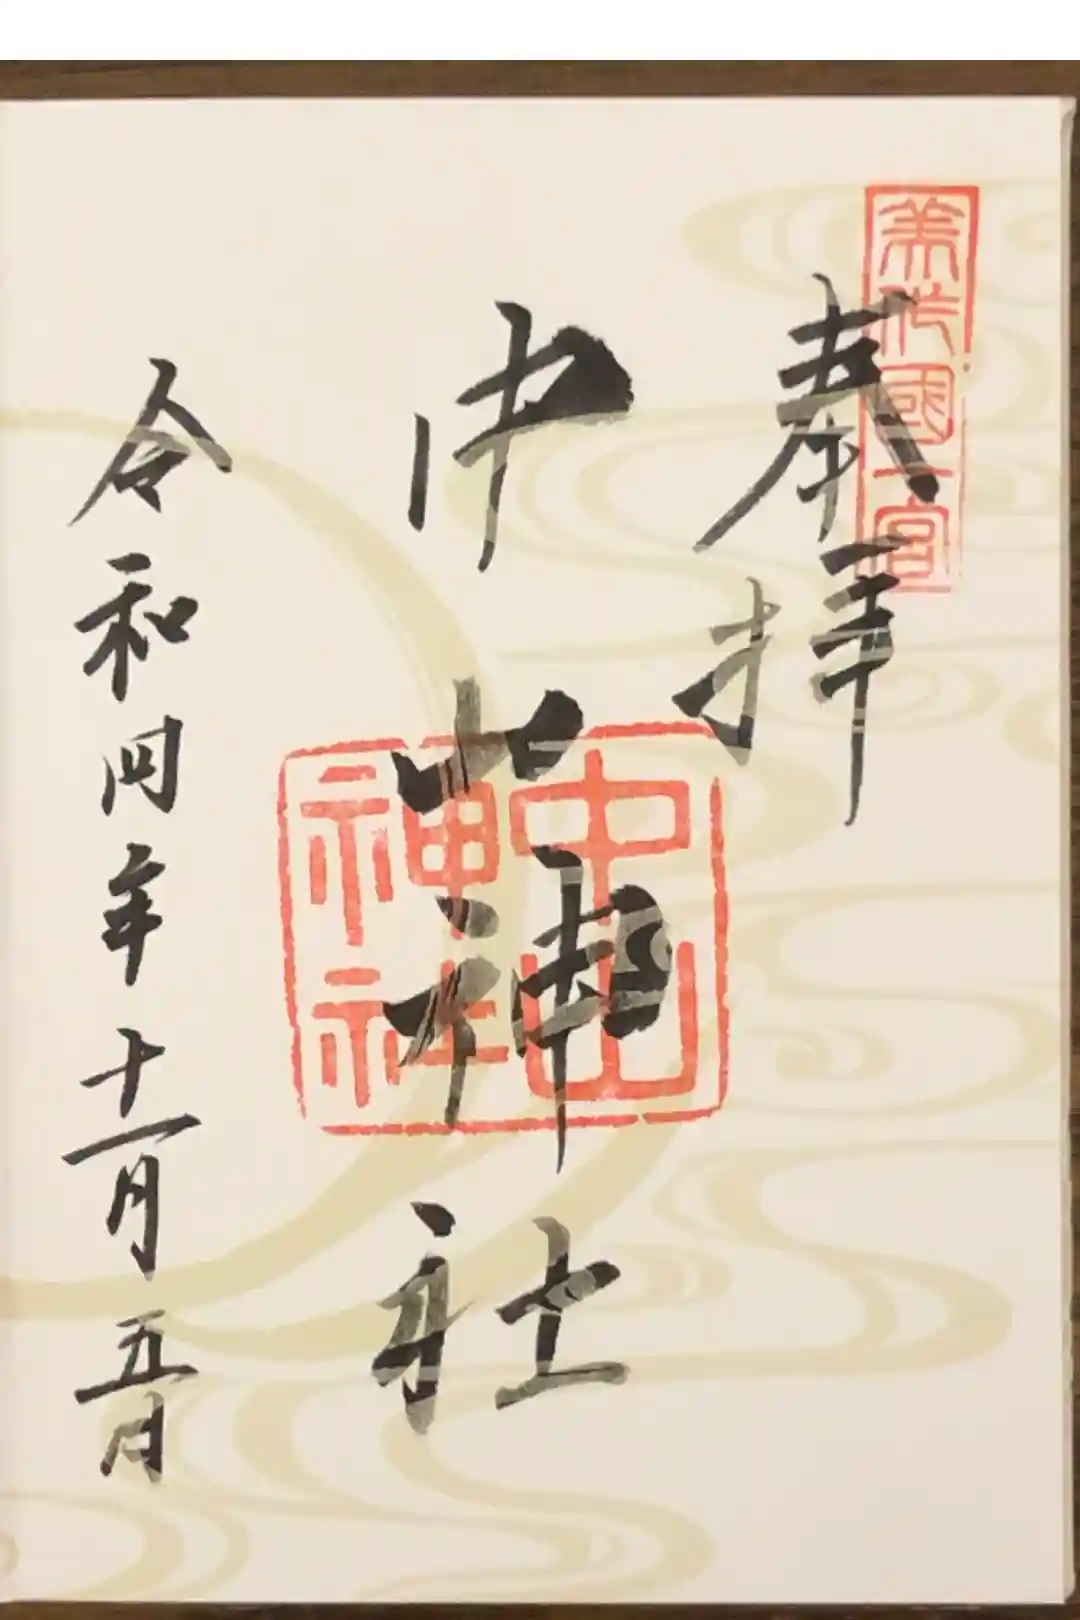 美作國一宮
奉拝
中山神社
中山神社
令和四年十一月五日